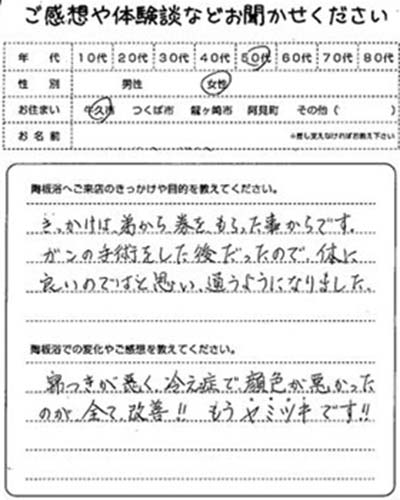 ご感想や体験談などお聞かせください
年 代 10代 20代 30代 40代 50代 60代 70代 80代
性 別 男性 女性
お住まい 牛久市 つくば市 龍ヶ崎市 阿見町 その他( )
お 名 前 ※差し支えなければお教え下さい
陶板浴へご来店のきっかけや目的を教えてください。
きっかけは、弟から券をもらった事からです。
ガンの手術をした後だったので、体に
良いのではと思い、通うようになりました。
陶板浴での変化やご感想を教えてください。
寝つきが悪く、冷え症で、顔色が悪かった
のが、全て、改善!! もうヤミツキです!!